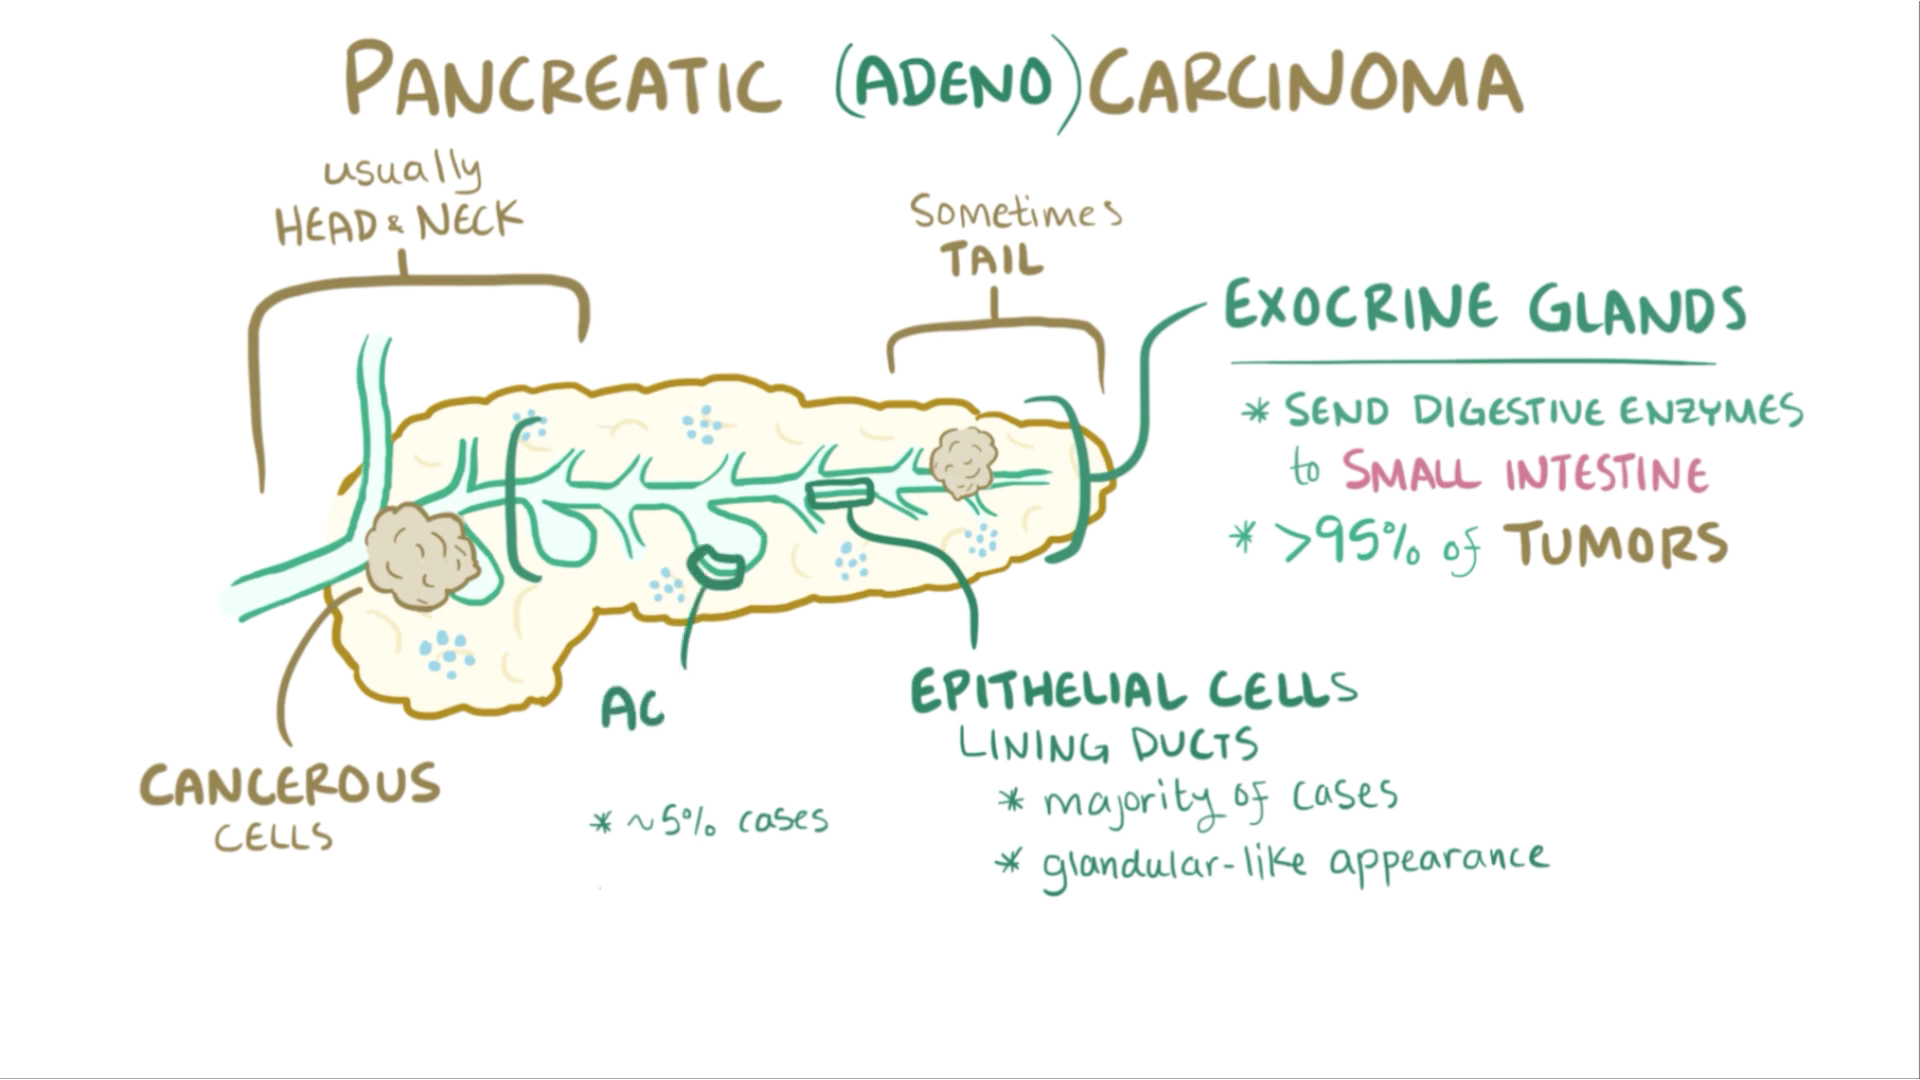 PANCREATIC (ADENO) CARCINOMA
usually
HEAD & NECK
Sometimes
TAIL
EXOCRINE GLANDS
* SEND DIGESTIVE ENZYMES
to SMALL INTESTINE
* >95% of TUMORS
AC
* ~5% cases
EPITHELIAL CELLS
LINING DUCTS
* majority of cases
* glandular-like appearance
CANCEROUS
CELLS